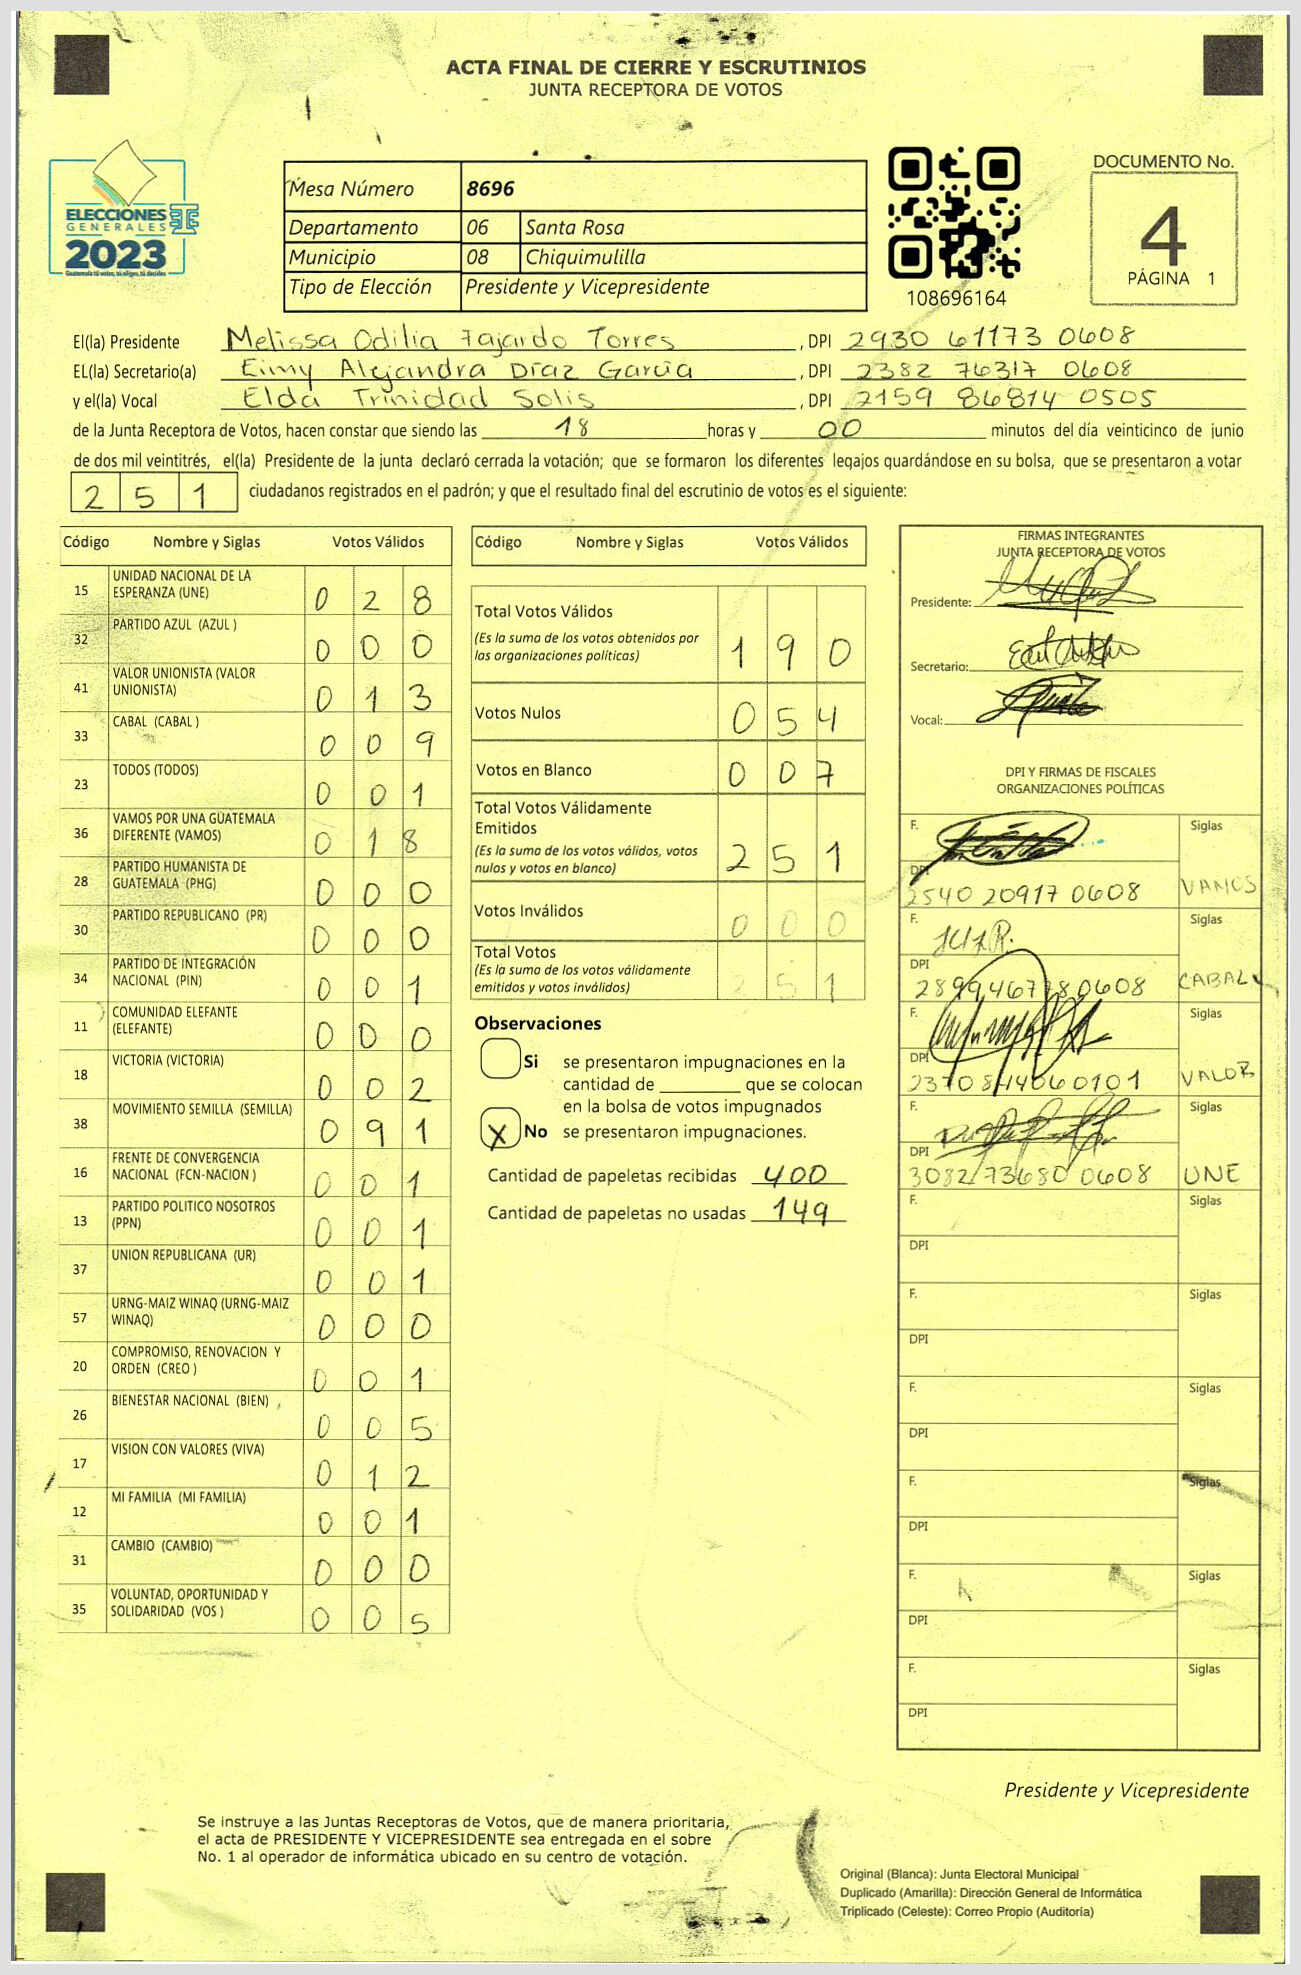 ACTA FINAL DE CIERRE Y ESCRUTINIOS
JUNTA RECEPTORA DE VOTOS
ELECCIONES
GENERALES
2023
Guatemala tú votas, tú eliges, tú decides
Mesa Número 8696
Departamento 06 Santa Rosa
Municipio 08 Chiquimulilla
Tipo de Elección Presidente y Vicepresidente
108696164
DOCUMENTO No.
4
PÁGINA 1
El(la) Presidente Melissa Odilia Fajardo Torres, DPI 2930 61173 0608
EL(la) Secretario(a) Eimy Alejandra Díaz García, DPI 2382 76317 0608
y el(la) Vocal Elda Trinidad Solis, DPI 2159 86814 0505
de la Junta Receptora de Votos, hacen constar que siendo las 18 horas y 00 minutos del día veinticinco de junio
de dos mil veintitrés, el(la) Presidente de la junta declaró cerrada la votación; que se formaron los diferentes legajos guardándose en su bolsa, que se presentaron a votar
251 ciudadanos registrados en el padrón; y que el resultado final del escrutinio de votos es el siguiente:
Código Nombre y Siglas Votos Válidos
15 UNIDAD NACIONAL DE LA ESPERANZA (UNE) 028
32 PARTIDO AZUL (AZUL ) 000
41 VALOR UNIONISTA (VALOR UNIONISTA) 013
33 CABAL (CABAL ) 009
23 TODOS (TODOS) 001
36 VAMOS POR UNA GUATEMALA DIFERENTE (VAMOS) 018
28 PARTIDO HUMANISTA DE GUATEMALA (PHG) 000
30 PARTIDO REPUBLICANO (PR) 000
34 PARTIDO DE INTEGRACIÓN NACIONAL (PIN) 001
11 COMUNIDAD ELEFANTE (ELEFANTE) 000
18 VICTORIA (VICTORIA) 002
38 MOVIMIENTO SEMILLA (SEMILLA) 091
16 FRENTE DE CONVERGENCIA NACIONAL (FCN-NACION ) 001
13 PARTIDO POLITICO NOSOTROS (PPN) 001
37 UNION REPUBLICANA (UR) 001
57 URNG-MAIZ WINAQ (URNG-MAIZ WINAQ) 000
20 COMPROMISO, RENOVACION Y ORDEN (CREO ) 001
26 BIENESTAR NACIONAL (BIEN) 005
17 VISION CON VALORES (VIVA) 012
12 MI FAMILIA (MI FAMILIA) 001
31 CAMBIO (CAMBIO) 000
35 VOLUNTAD, OPORTUNIDAD Y SOLIDARIDAD (VOS ) 005
Código Nombre y Siglas Votos Válidos
Total Votos Válidos 190
(Es la suma de los votos obtenidos por
las organizaciones políticas)
Votos Nulos 054
Votos en Blanco 007
Total Votos Válidamente
Emitidos 251
(Es la suma de los votos válidos, votos
nulos y votos en blanco)
Votos Inválidos 000
Total Votos 251
(Es la suma de los votos válidamente
emitidos y votos inválidos)
Observaciones
Si se presentaron impugnaciones en la
cantidad de ________ que se colocan
en la bolsa de votos impugnados
X No se presentaron impugnaciones.
Cantidad de papeletas recibidas 400
Cantidad de papeletas no usadas 149
FIRMAS INTEGRANTES
JUNTA RECEPTORA DE VOTOS
Presidente:
Secretario:
Vocal:
DPI Y FIRMAS DE FISCALES
ORGANIZACIONES POLÍTICAS
F. Siglas
DPI 2540 20917 0608 VAMOS
F. Siglas
DPI 2899 46778 0608 CABAL
F. Siglas
DPI 2370 84406 0101 VALOR
F. Siglas
DPI 3082 73680 0608 UNE
F. Siglas
DPI
F. Siglas
DPI
F. Siglas
DPI
F. Siglas
DPI
F. Siglas
DPI
F. Siglas
DPI
Presidente y Vicepresidente
Se instruye a las Juntas Receptoras de Votos, que de manera prioritaria,
el acta de PRESIDENTE Y VICEPRESIDENTE sea entregada en el sobre
No. 1 al operador de informática ubicado en su centro de votación.
Original (Blanca): Junta Electoral Municipal
Duplicado (Amarilla): Dirección General de Informática
Triplicado (Celeste): Correo Propio (Auditoría)